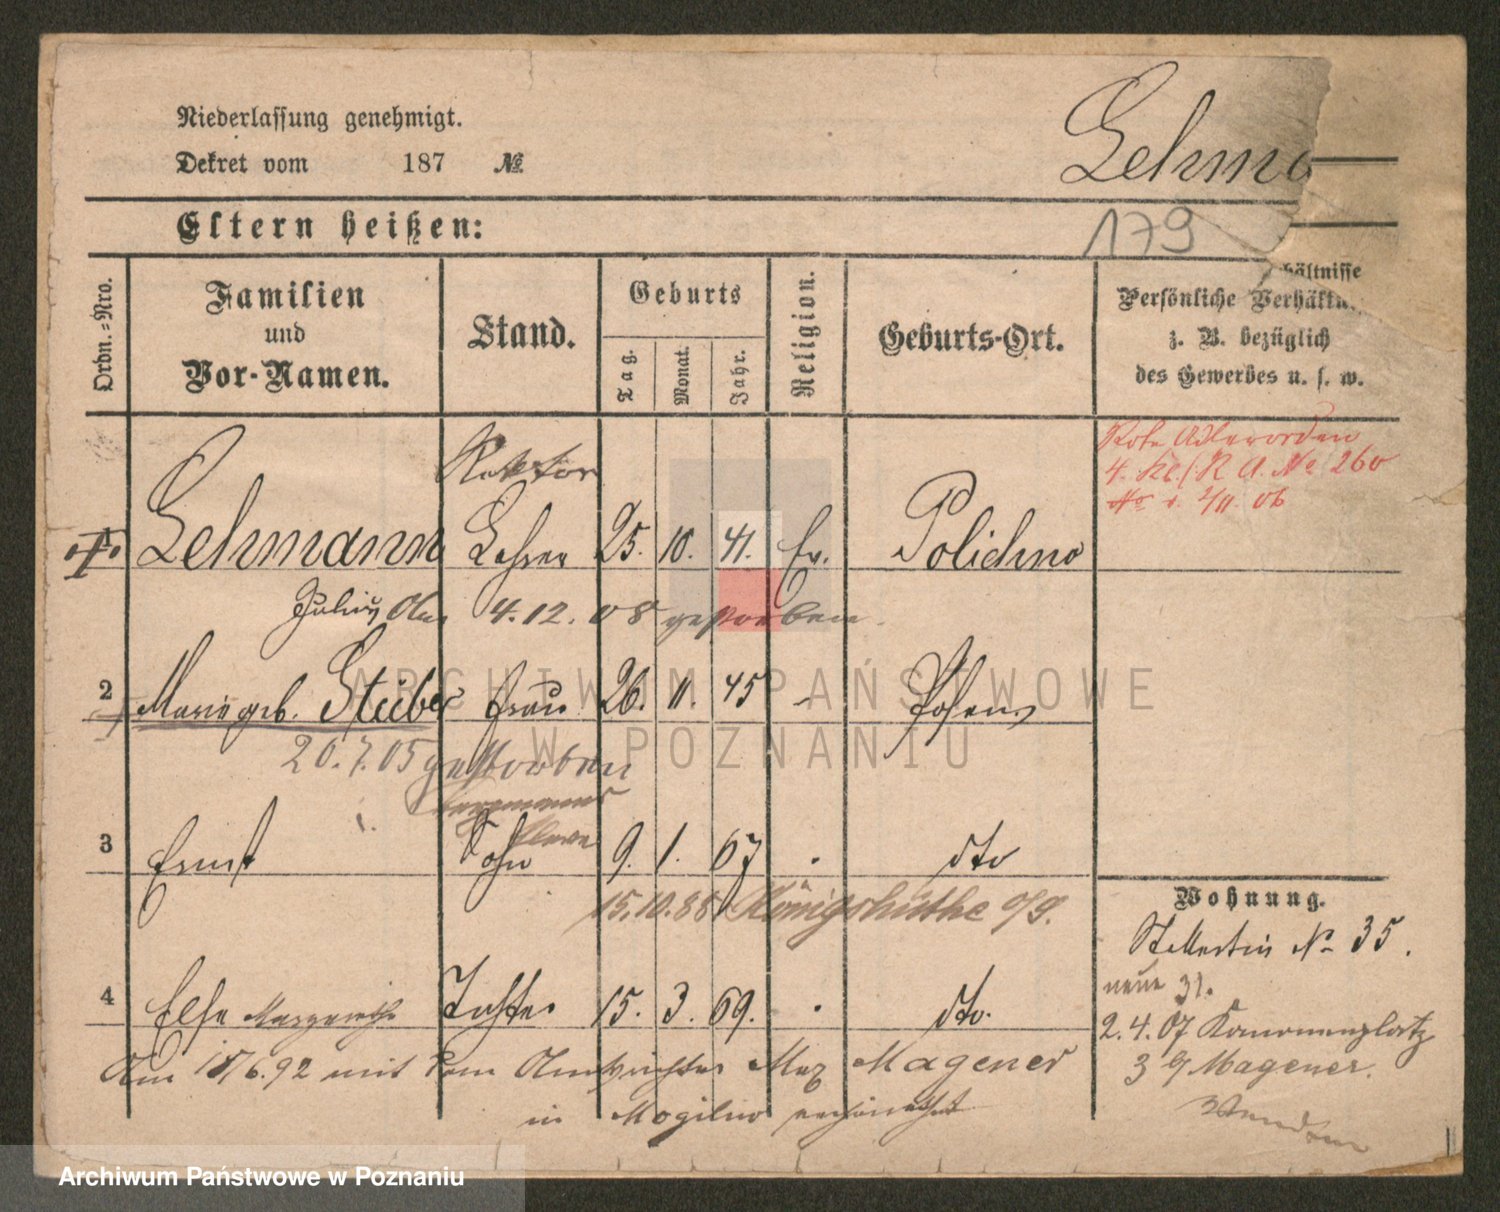 Niederlassung genehmigt.
Dekret vom 187 №
Lehma
Eltern heißen:
179
Ordn.-Nro.
Familien
und
Vor-Namen.
Stand.
Geburts
Tag.
Monat.
Jahr.
Religion.
Geburts-Ort.
hältnisse
Persönliche Verhältn
z. B. bezüglich
des Gewerbes u. s. w.
Rote Adlerorden
4. Kl. (R A. No 260
2/11. 06
Rektor
1 Lehmann Lehrer 25. 10. 41. Ev. Polichno
Julius 4. 12. 08 gestorben.
2 Marie geb. Stüber Frau 26. 11. 45 Posen
20. 7. 05 gestorben
3 Ernst Sohn 9. 1. 67 dto
15. 10. 88 Königshütte o/S.
Wohnung.
St Martin No 35.
neue 31.
4 Else Margarethe Tochter 15. 3. 69. dto.
2. 4. 07 Kanonenplatz
3 b/ Magener.
Am 6. 92 mit dem Amtsrichter Max Magener
in Mogilno verheirathet
ARCHIWUM PAŃSTWOWE
W POZNANIU
Archiwum Państwowe w Poznaniu